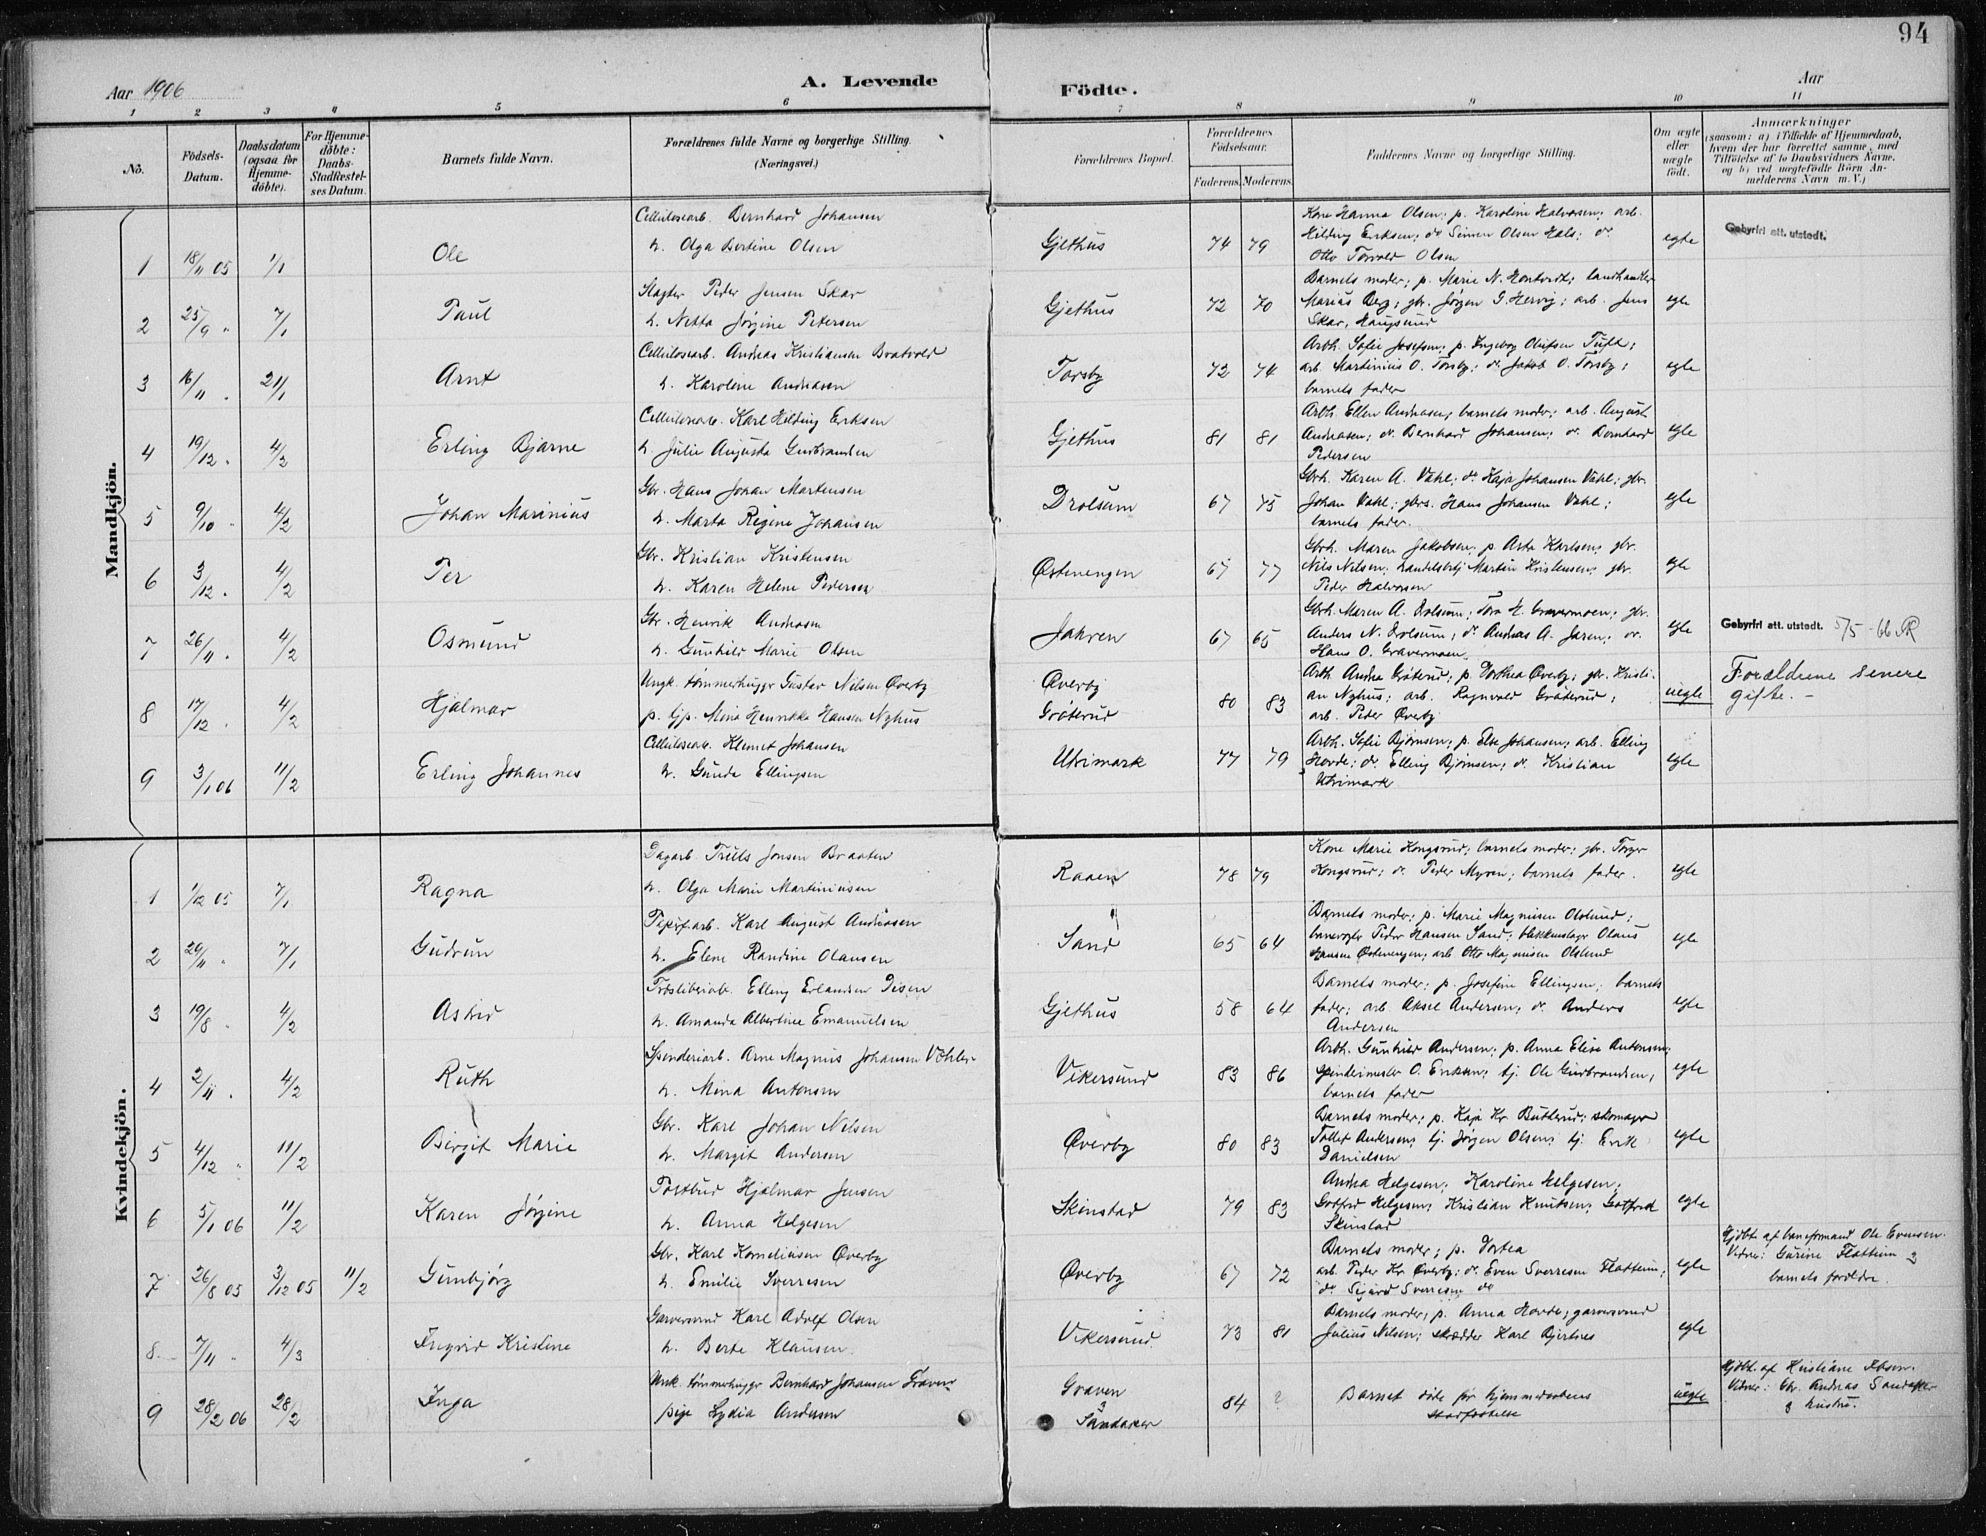 94
Aar 1906
A. Levende Födte.
Aar
1 2 3 4 5 6 7 8 9 10 11
No.
Födsels-Datum.
Daabsdatum (ogsaa for Hjemme-døbte).
For Hjemme-døbte: Daabs-Stadfæstelses Datum.
Barnets fulde Navn.
Forældrenes fulde Navne og borgerlige Stilling. (Næringsvei.)
Forældrenes Bopæl.
Forældrenes Födselsaar.
Faderens. Moderens.
Faddernes Navne og borgerlige Stilling.
Om ægte eller uægte födt.
Anmærkninger
(saasom: a) i Tilfælde af Hjemmedaab, hvem der har forrettet samme, med Tilföielse af to Daabsvidners Navne. og b) ved uægtefödte Börn Anmelderens Navn m. V.)
Mandkjön.
1 18/11 05 1/1 Ole
Cellulosearb. Bernhard Johansen
h. Olga Bertine Olsen
Gjethus 74 79
Kone Hanna Olsen; p. Karoline Halvorsen; arb.
Hilding Eriksen; do Simen Olsen Hals; do
Otto Torvald Olsen
egte
Gebyrfri att. utstedt.
2 25/9 " 7/1 Paul
Slagter Peder Jensen Skar
h. Netta Jørgine Petersen
Gjethus 72 70
Barnets moder; p. Marie N. Hontvedt; landhandler
Marius Berg; gbr. Jørgen G. Hervg; arb. Jens
Skar, Haugsund
egte
3 16/11 " 21/1 Arnt
Cellulosearb. Andreas Kristiansen Bratvold
h. Karoline Andreasen
Torsby 72 74
Arbh. Sofie Josefsen; p. Ingeborg Olufsen Tuft;
arb. Martinius O. Torsby; do Jakob O. Torsby;
barnets fader
egte
4 19/12 " 4/2 Erling Bjarne
Cellulosearb. Karl Hilding Eriksen
h. Julie Augusta Gudbrandsen
Gjethus 81 81
Arbh. Ellen Andreasen; barnets moder; arb. August
Andreasen; do. Bernhard Johansen; do. Bernhard
Pedersen
egte
5 9/10 " 4/2 Johan Marinius
Gbr. Hans Johan Martensen
h. Marta Regine Johansen
Drolsum 67 75
Gbrh. Karen A. Vahl; do Kaja Johansen Vahl; gbr.
Johan Vahl; gbrs. Hans Johansen Vahl;
barnets fader.
egte
6 3/12 " 4/2 Per
Gbr. Kristian Kristensen
h. Karen Helene Pedersen
Østenengen 67 77
Gbrh. Maren Jakobsen; p. Asta Karlsen; gbr.
Nils Nilsen; Martin Kristensen; gbr.
Peder Halvorsen
egte
7 26/11 " 4/2 Osmund
Gbr. Henrik Andreasen
h. Gunhild Marie Olsen
Jahren 67 65
Gbrh. Maren A. Drolsum; Tora H. Gravermoen; gbr.
Anders N. Drolsum; do Andreas A. Jaren; do.
Hans O. Gravermoen.
egte
Gebyrfri att. utstedt. 5/5 -66 AR
8 17/12 4/2 Hjalmar
Ungk. tømmerhugger Gustav Nilsen Øverby
p. tjp. Mina Henrikka Hansen Nyhus
Øverby
Grøterud
80 83
Arbh. Andrea Grøterud; p. Dorthea Øverby; gbr. Kristi-
an Nyhus; arb. Ragnvald Grøterud;
arb. Peder Øverby
uegte
Forældrene senere
gifte. -
9 3/1 06 11/2 Erling Johannes
Cellulosearb. Klemet Johansen
h. Gunda Ellingsen
Utvimark 77 79
Arbh. Sofie Bjørnsen; p. Else Johansen; arb. Elling
Hovde; do. Elling Bjørnsen; do. Kristian
Utvimark
egte
Kvindekjön.
1 1/12 05 7/1 Ragna
Dagarb. Truls Jonsen Braaten
h. Olga Marie Martiniusen
Raaen 78 79
Kone Marie Kongsrud; barnets moder; gbr. Torger
Kongsrud; do. Peder Myren; barnets fader.
egte
2 29/11 " 7/1 Gudrun
Papirfarb. Karl August Andreasen
h. Elene Randine Olausen
Sand 65 64
Barnets moder; p. Marie Magnusen Oslund;
banevogter Peder Hansen Sand; blikkenslager Olaus
Hansen Østenengen; arb. Otto Magnusen Oslund
egte
3 19/8 " 4/2 Astrid
Træsliberiarb. Elling Erlandsen Disen
h. Amanda Albertine Emanuelsen
Gjethus 58 64
Barnets moder; p. Josefine Ellingsen; barnets
fader; arb. Aksel Andersen; do. Anders
Andersen
egte
4 2/11 " 4/2 Ruth
Spinderiarb. Arne Magnus Johansen Vøhler
h. Mina Antonsen
Vikersund 83 86
Arbh. Gunhild Andersen; p. Anna Elise Antonsen;
spindemester O. Eriksen; tj. Ole Gudbrandsen,
barnets fader
egte
5 4/12 " 11/2 Birgit Marie
Gbr. Karl Johan Nilsen
h. Margit Andersen
Øverby 80 83
Barnets moder; p. Kaja Kr. Butterud; skomager
Tollef Andersen; tj. Jørgen Olsen; tj. Erik
Danielsen
egte
6 5/1 06 11/2 Karen Jørgine
Postbud Hjalmar Jensen
h. Anna Helgesen
Skinstad 79 83
Andrea Helgesen; Karoline Helgesen;
Gotfred Helgesen; Kristian Knutsen; Gotfred
Skinstad
egte
7 26/8 05 3/12 05 11/2 Gunbjørg
Gbr. Karl Korneliusen Øverby
h. Emilie Sverresen
Øverby 67 72
Barnets moder; p. Dortea
arb. Peder Kr. Øverby; do. Even Sverresen Flattum;
do Sigurd Sverresen do
egte
Hjdbt. af baneformand Ole Evensen.
Vidner: Gurine Flattum &
barnets forældre.
8 7/11 " 4/3 Ingrid Kristine
Garversvend Karl Adolf Olsen
h. Berte Klausen.
Vikersund 73 81
Barnets moder; p. Anna Hovde; garversvend
Julius Nilsen; skrædder Karl Bjertnes
egte
9 28/2 06 28/2 Inga
Unk. tømmerhugger Bernhard Johansen Graven
pige Lydia Andersen
Graven
&
Sandaker
84 ?
Barnet døde før hjemmedaabens
stadfæstelse
uegte
Hjdbt. af Kristiane Ibsen.
Vidner: Gbr. Andreas Sandaker
& hustru.